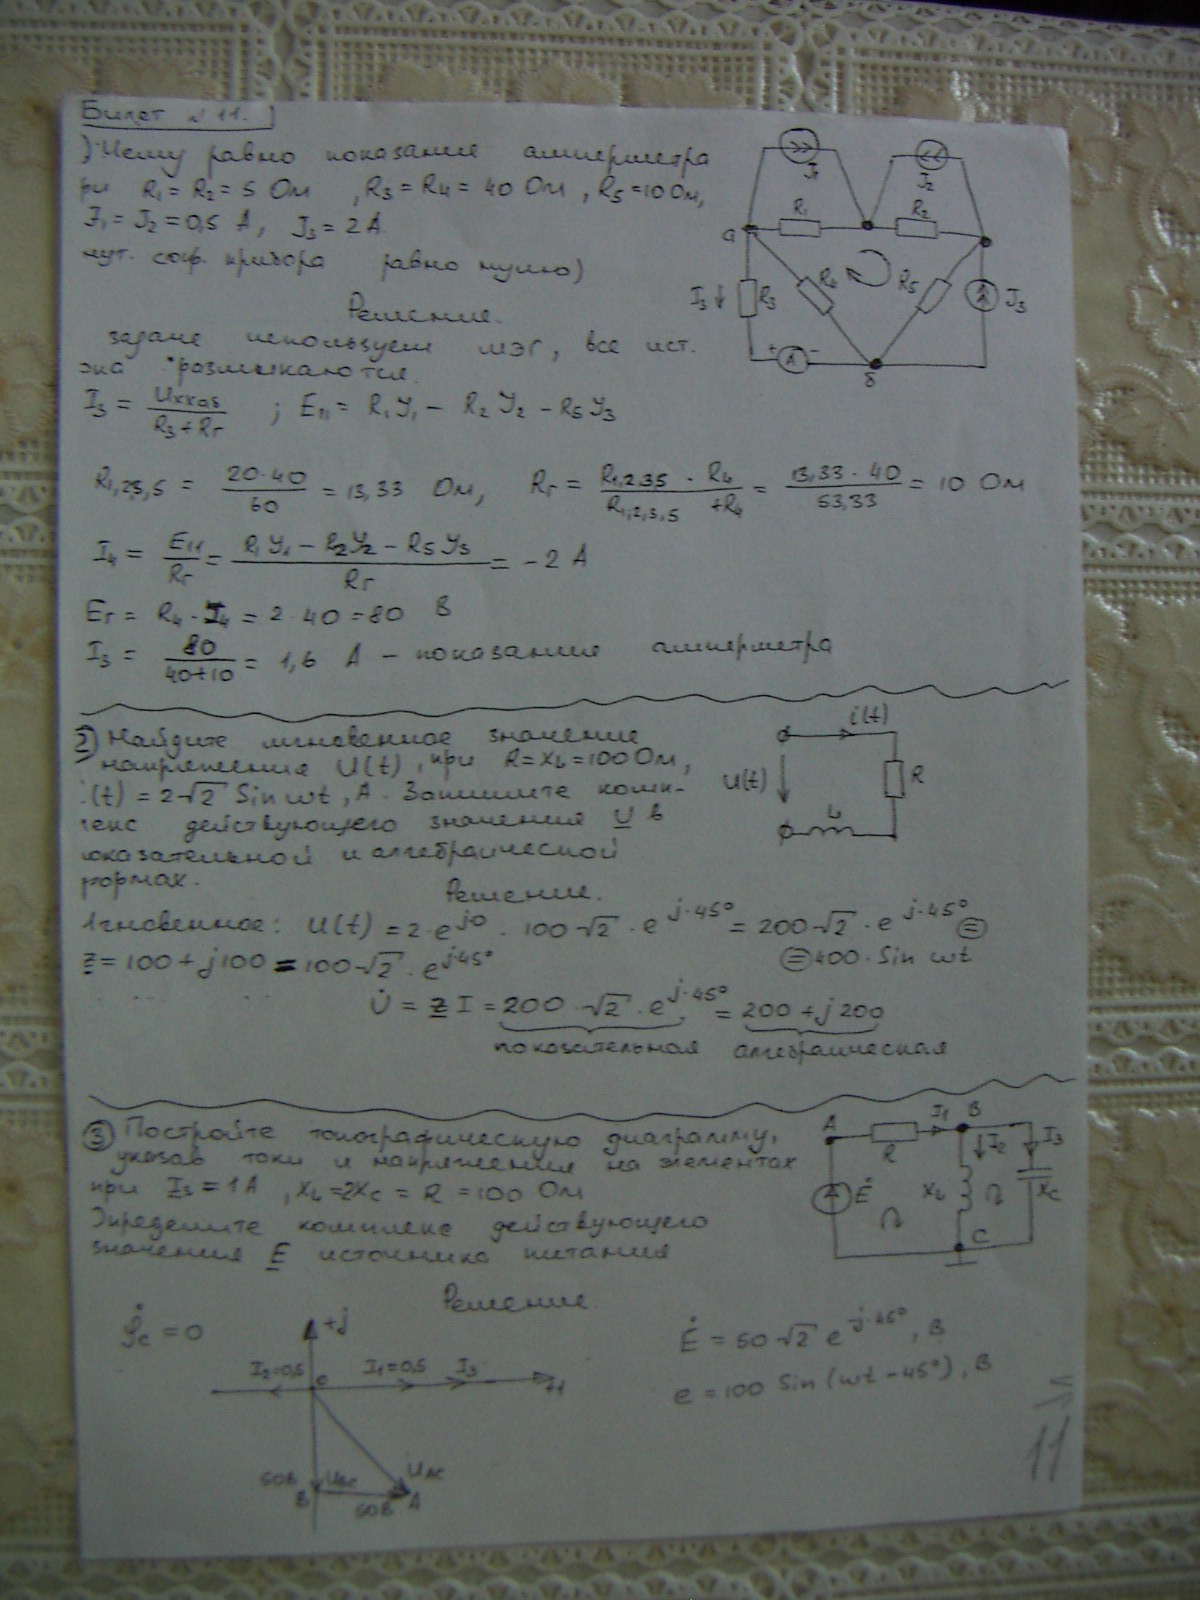 Билет № 11.
) Чему равно показание амперметра
ри R₁ = R₂ = 5 Ом , R₃ = R₄ = 40 Ом, R₅ = 10 Ом,
J₁ = J₂ = 0,5 А, J₃ = 2 А.
нут. сопр. прибора равно нулю)
J₁
J₂
R₁
R₂
а
I₃ ↓
R₃
R₄
R₅
J₃
+ А -
б
Решение.
задаче используем МЭГ, все ист.
ока размыкаются.
I₃ = Uххаб / (R₃ + Rг) ; E₁₁ = R₁J₁ - R₂J₂ - R₅J₃
R₁,₂,₃,₅ = 20·40 / 60 = 13,33 Ом, Rг = R₁,₂,₃,₅ · R₄ / (R₁,₂,₃,₅ + R₄) = 13,33 · 40 / 53,33 = 10 Ом
I₄ = E₁₁ / Rг = (R₁J₁ - R₂J₂ - R₅J₃) / Rг = - 2 А
Eг = R₄ · I₄ = 2 · 40 = 80 В
I₃ = 80 / (40+10) = 1,6 А - показания амперметра
2) Найдите мгновенное значение
напряжения U(t), при R = XL = 100 Ом,
i(t) = 2√2 Sin wt, А. Запишите комп-
лекс действующего значения U в
оказательной и алгебраической
формах.
i(t)
U(t)
R
L
Решение.
Мгновенное: U(t) = 2·e^j0 · 100√2 · e^j·45° = 200√2 · e^j·45° =
z = 100 + j100 = 100√2 · e^j·45°
= 400 · Sin wt
U̇ = z I = 200 · √2 · e^j·45° = 200 + j 200
показательная алгебраическая
3) Постройте топографическую диаграмму,
указав токи и напряжения на элементах
при I₃ = 1 А, XL = 2Xc = R = 100 Ом
Определите комплекс действующего
значения E источника питания
A
R
I₁
B
I₂
I₃
Ė
XL
Xc
C
Решение.
φ̇c = 0
+j
I₂=0,5
c
I₁=0,5
I₃
+1
50В
B
UBC
50В
UAC
A
Ė = 50√2 e^-j·45°, В
e = 100 Sin (wt - 45°), В
11